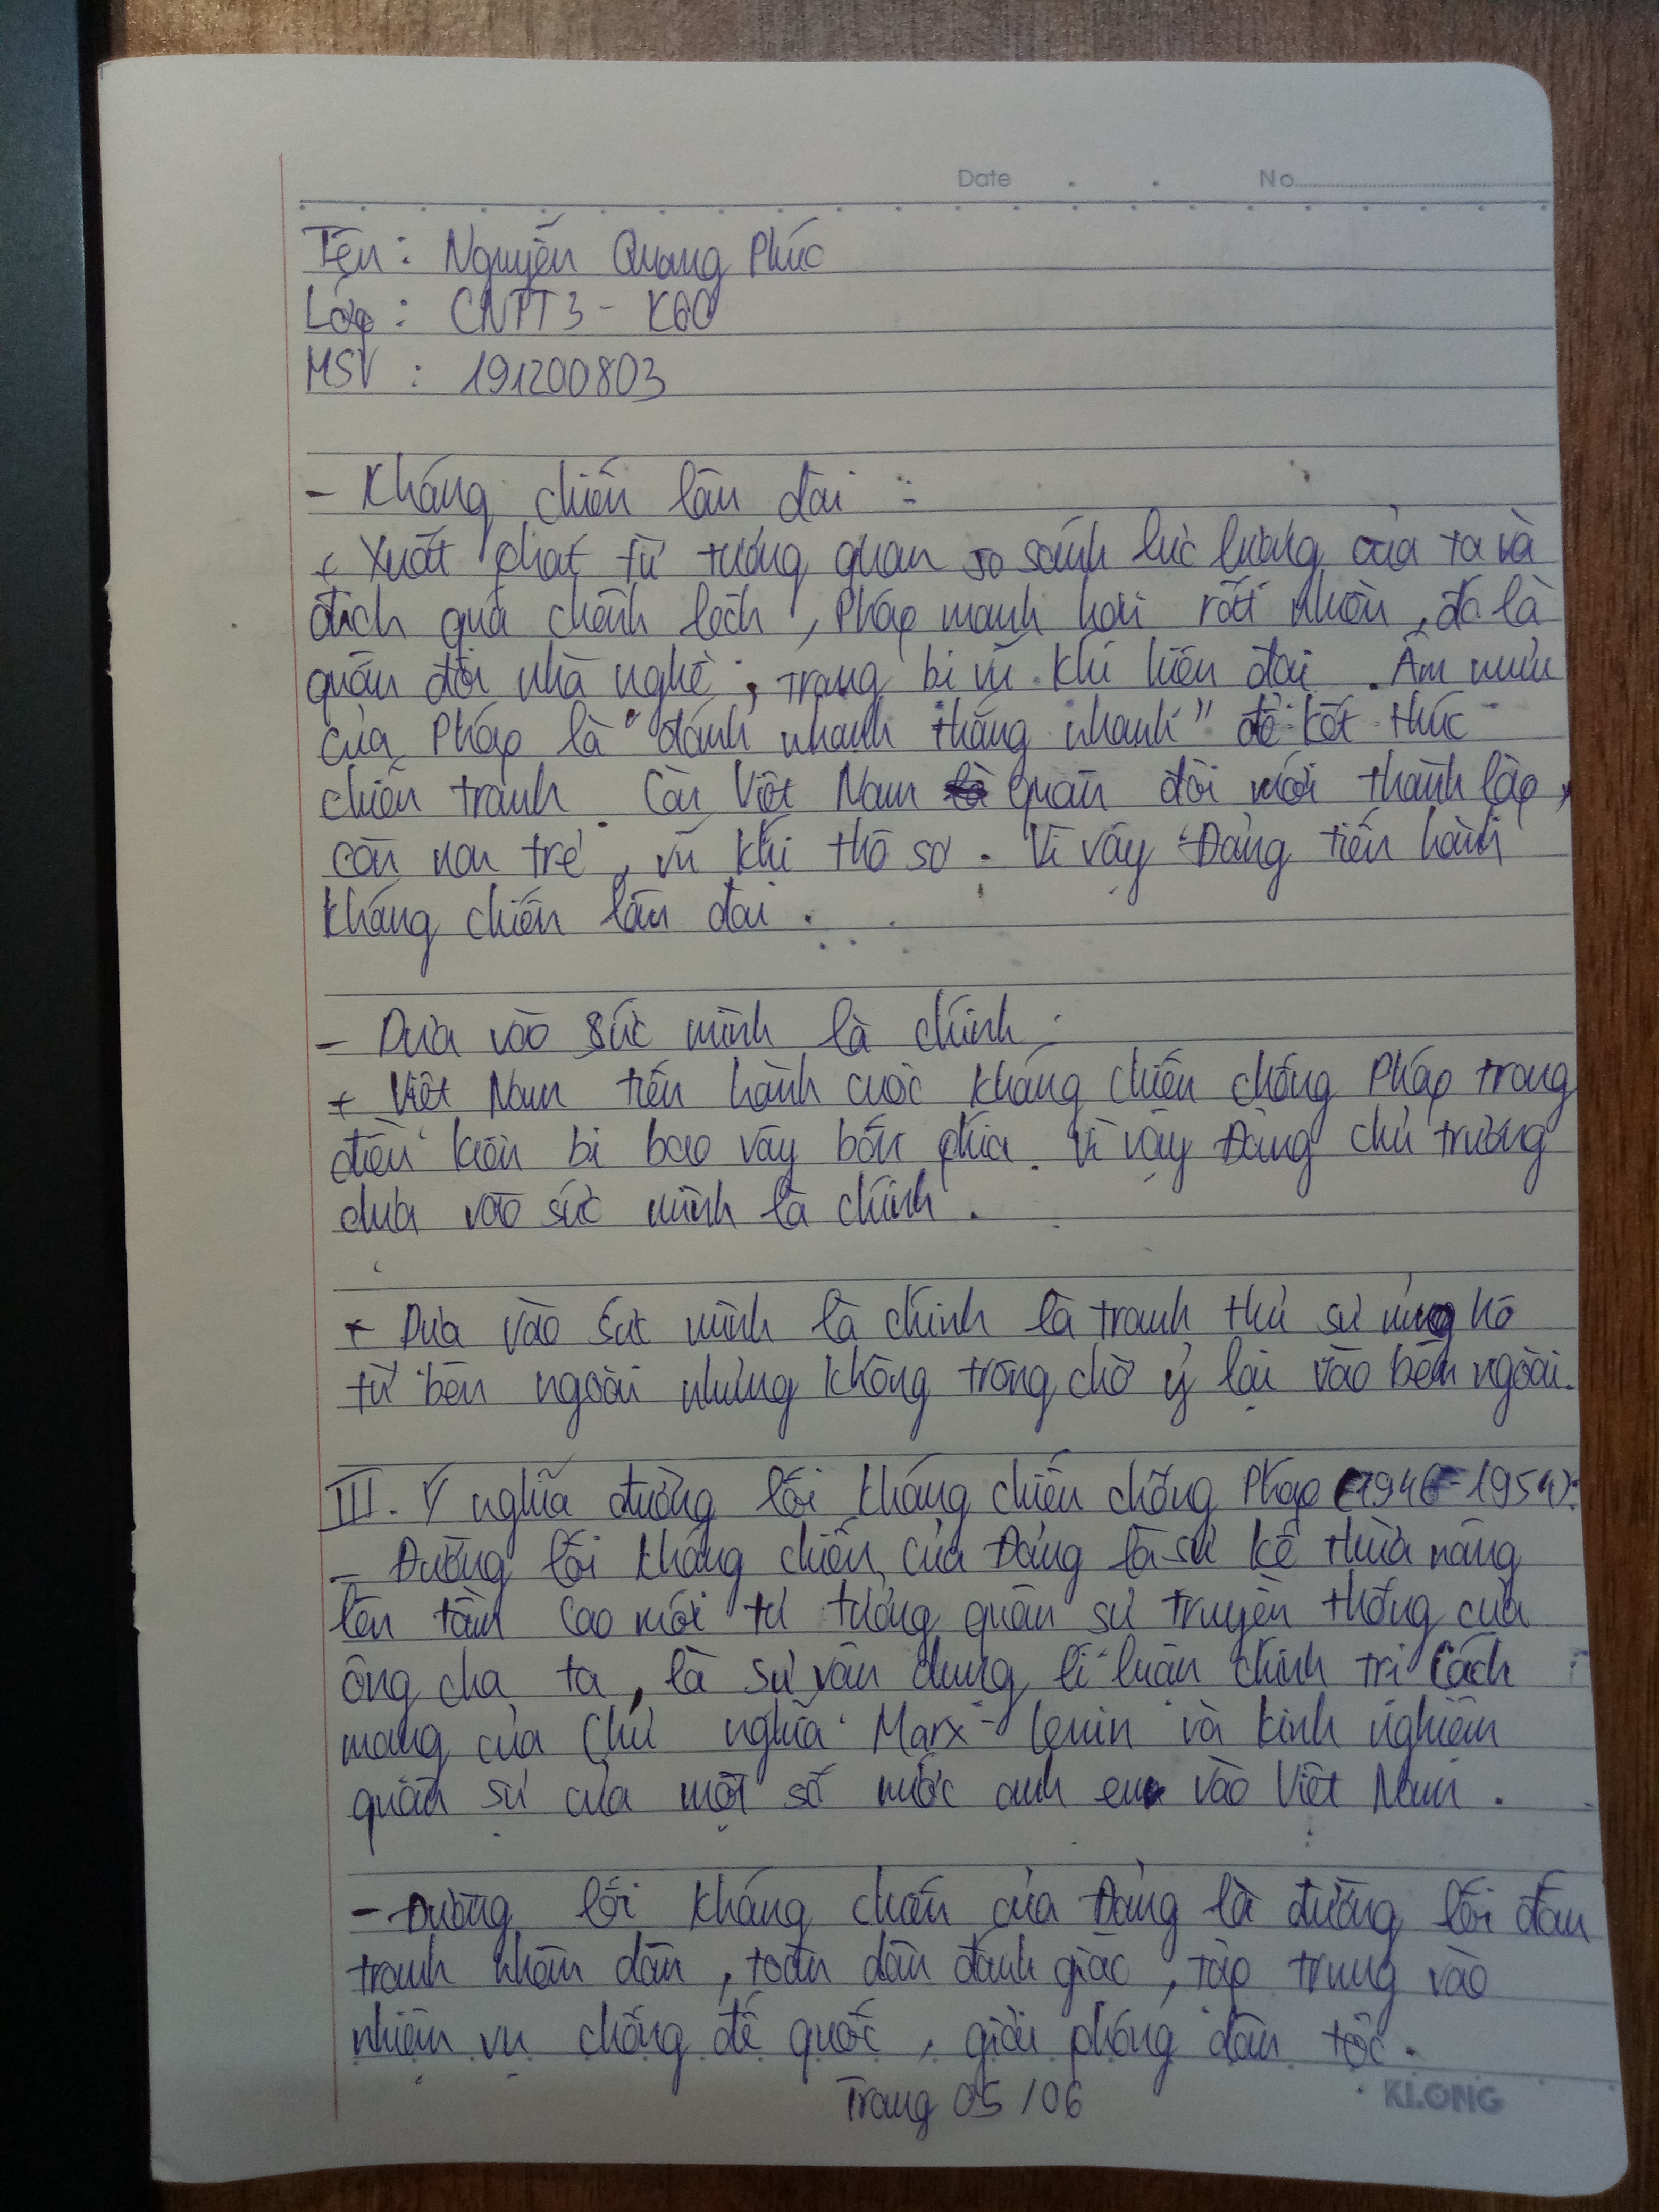 Date . . No
Tên : Nguyễn Quang Phúc
Lớp : CNTT3 - K60
MSV : 191200803
- Kháng chiến lâu dài :
+ Xuất phát từ tương quan so sánh lực lượng của ta và
địch quá chênh lệch, Pháp mạnh hơn rất nhiều, đó là
quân đội nhà nghề, trang bị vũ khí hiện đại. Âm mưu
của Pháp là "đánh nhanh thắng nhanh" để kết thúc
chiến tranh. Còn Việt Nam quân đội mới thành lập,
còn non trẻ, vũ khí thô sơ. Vì vậy Đảng tiến hành
kháng chiến lâu dài.
- Dựa vào sức mình là chính :
+ Việt Nam tiến hành cuộc kháng chiến chống Pháp trong
điều kiện bị bao vây bốn phía. Vì vậy Đảng chủ trương
dựa vào sức mình là chính.
+ Dựa vào sức mình là chính là tranh thủ sự ủng hộ
từ bên ngoài nhưng không trông chờ ỷ lại vào bên ngoài.
III. Ý nghĩa đường lối kháng chiến chống Pháp (1946-1954):
- Đường lối kháng chiến của Đảng là sự kế thừa nâng
lên tầm cao mới tư tưởng quân sự truyền thống của
ông cha ta, là sự vận dụng lí luận chính trị cách
mạng của Chủ nghĩa Marx - Lenin và kinh nghiệm
quân sự của một số nước anh em vào Việt Nam.
- Đường lối kháng chiến của Đảng là đường lối đấu
tranh nhân dân, toàn dân đánh giặc, tập trung vào
nhiệm vụ chống đế quốc, giải phóng dân tộc.
Trang 05/06
KLONG